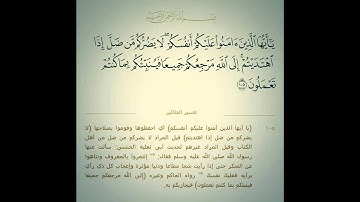 بسم الله الرحمن الرحيم
يَٰٓأَيُّهَا ٱلَّذِينَ ءَامَنُوا۟ عَلَيْكُمْ أَنفُسَكُمْ ۖ لَا يَضُرُّكُم مَّن ضَلَّ إِذَا
ٱهْتَدَيْتُمْ ۚ إِلَى ٱللَّهِ مَرْجِعُكُمْ جَمِيعًا فَيُنَبِّئُكُم بِمَا كُنتُمْ
تَعْمَلُونَ ١٠٥
تفسير الجلالين
١٠٥ (يا أيها الذين آمنوا عليكم أنفسكم) أي احفظوها وقوموا بصلاحها (لا
يضركم من ضل إذا اهتديتم) قيل المراد لا يضركم من ضل من أهل
الكتاب وقيل المراد غيرهم لحديث أبي ثعلبة الخشني: سألت عنها
رسول الله صلى الله عليه وسلم فقال: "ائتمروا بالمعروف وتناهوا
عن المنكر حتى إذا رأيت شحا مطاعا وهوى متبعا ودنيا مؤثرة وإعجاب كل ذي رأي
برأيه فعليك نفسك" رواه الحاكم وغيره (إلى الله مرجعكم جميعا
فينبئكم بما كنتم تعملون) فيجازيكم به.